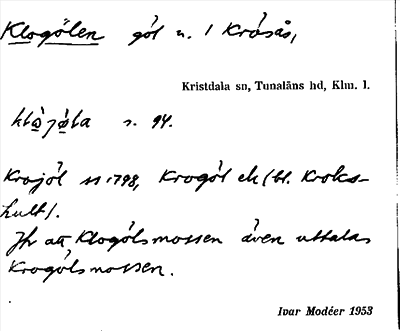 Klogölen göl n. / Kråsås,
Kristdala sn, Tunaläns hd, Klm. l.
s. 94.
Krogöl ek (bl. Kroks-
hult).
Jfr att Klogölsmossen även uttalas
Krogölsmossen.
Ivar Modéer 1953